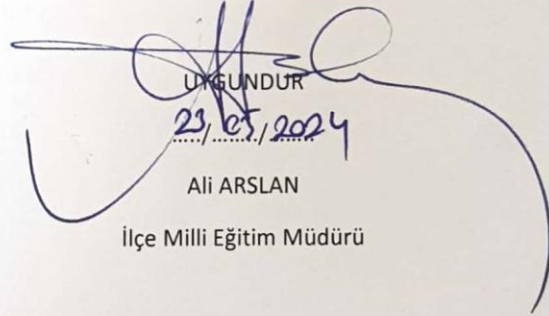 UYGUNDUR
23/05/2024
Ali ARSLAN
İlçe Milli Eğitim Müdürü